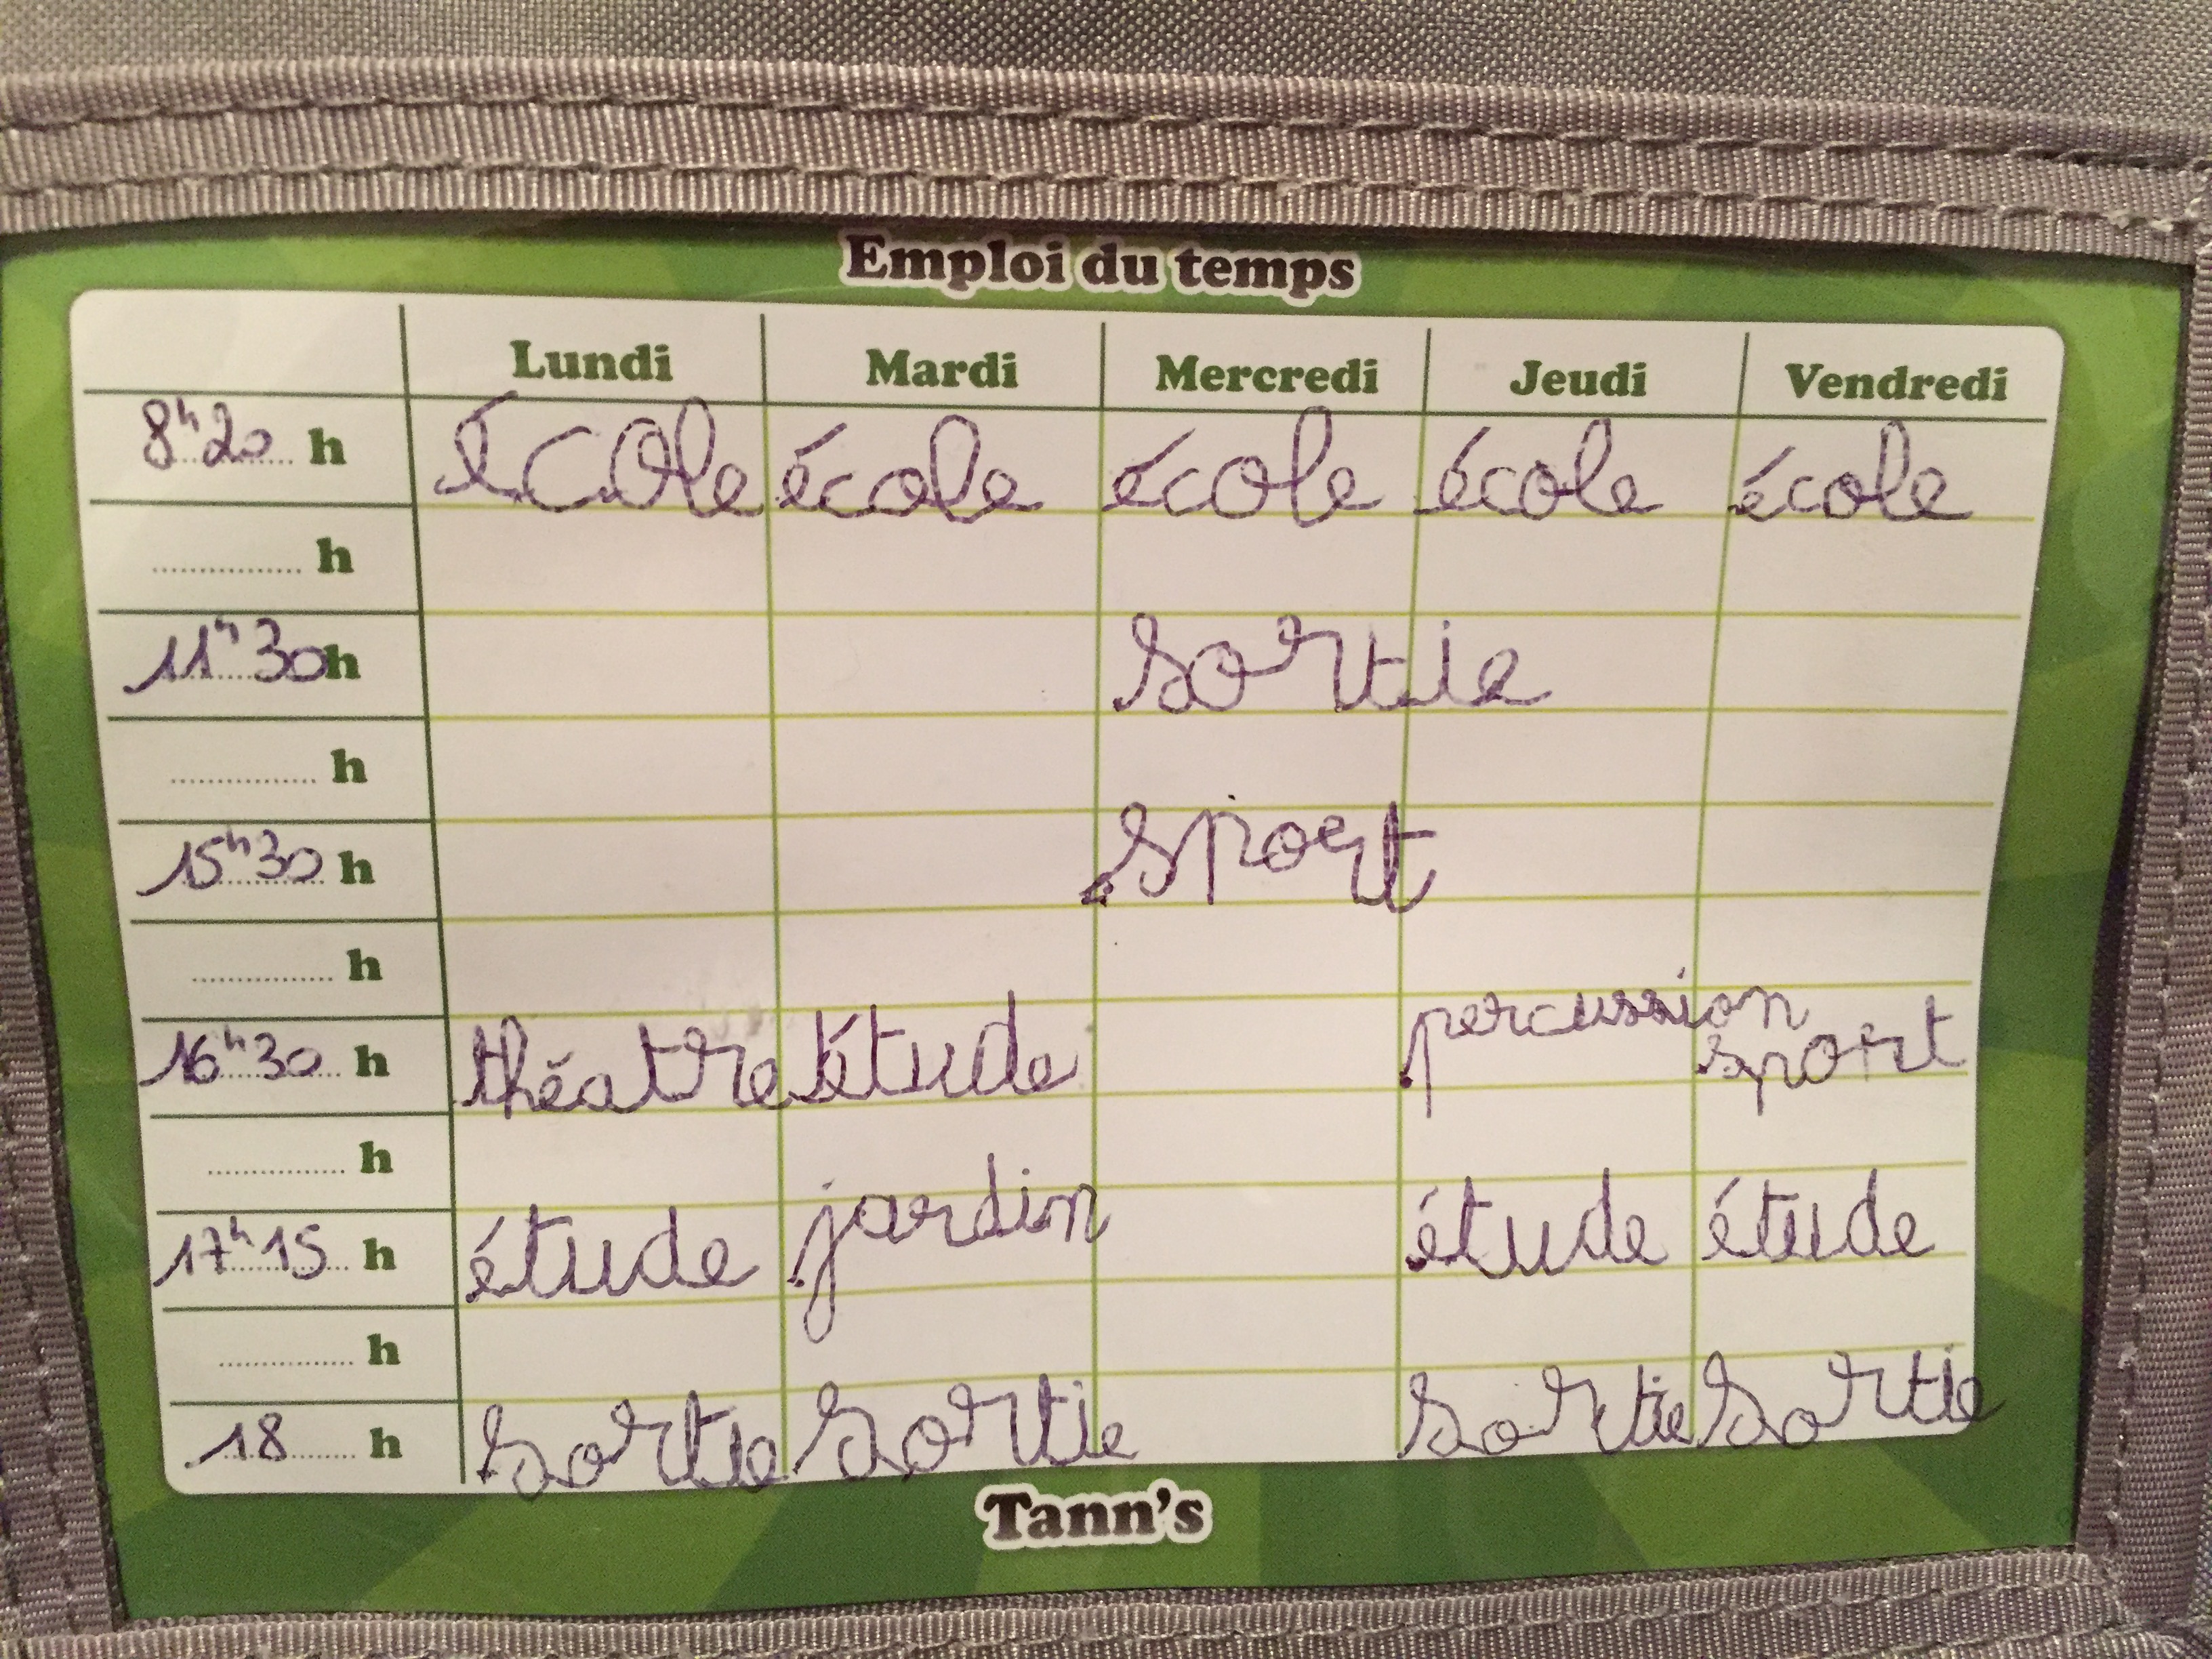 Emploi du temps
Lundi Mardi Mercredi Jeudi Vendredi
8h20 h école école école école école
h
11h30 h sortie
h
15h30 h sport
h
16h30 h théatre étude percussion sport
h
17h15 h étude jardin étude étude
h
18 h sortie sortie sortie sortie
Tann's